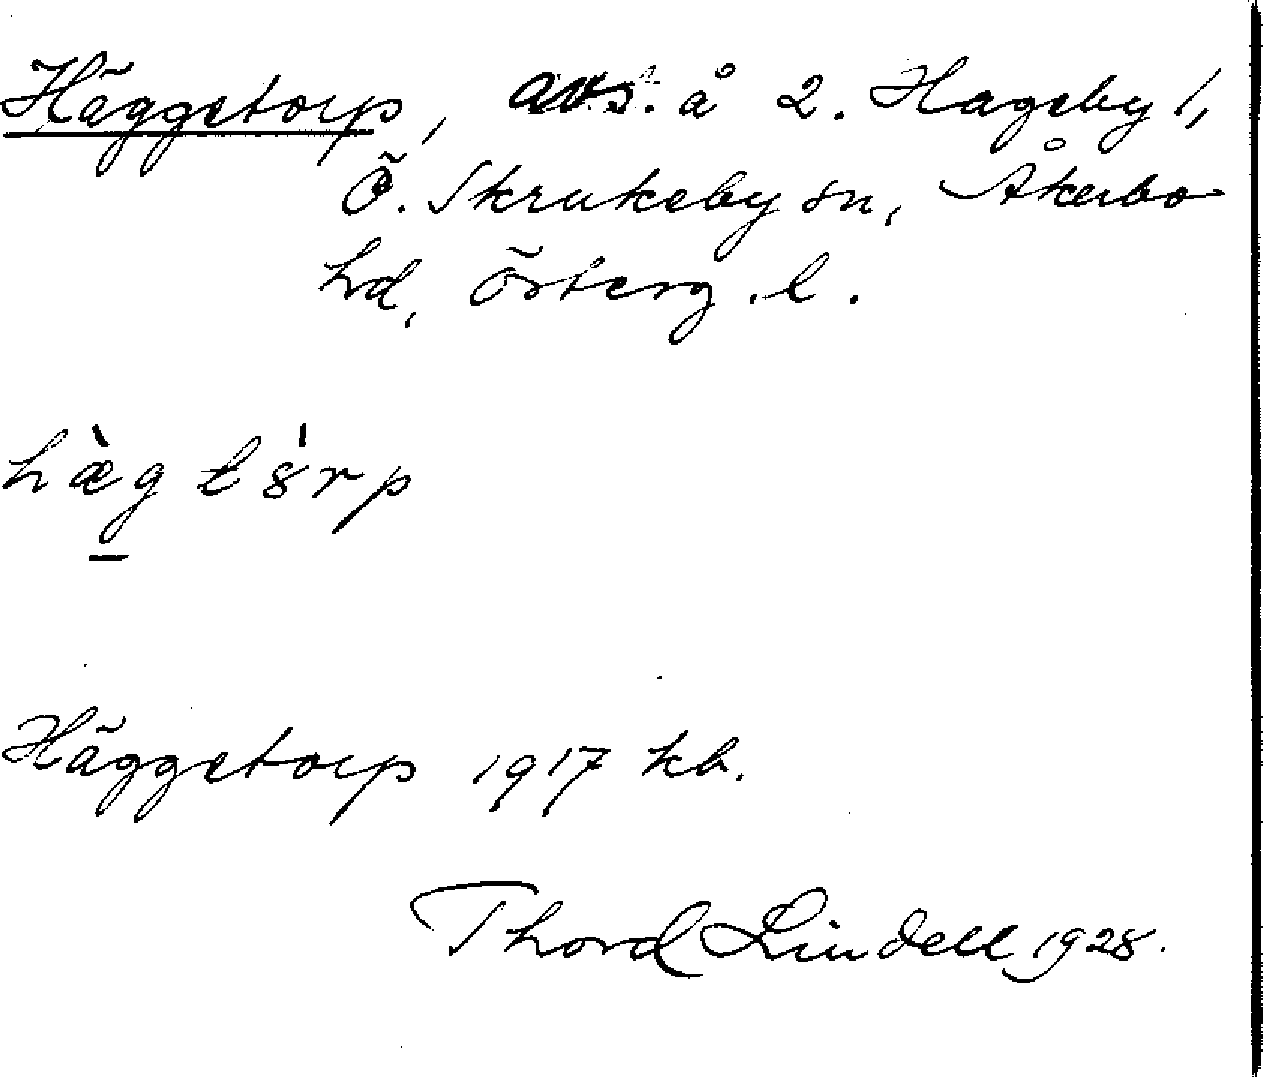 Häggetorp, avs. å 2. Hageby 1,
Ö. Skrukeby sn, Åkerbo
hd, Österg. l.
hæ̀g t 8́rp
Häggetorp 1917 kb.
Thord Lindell 1928.